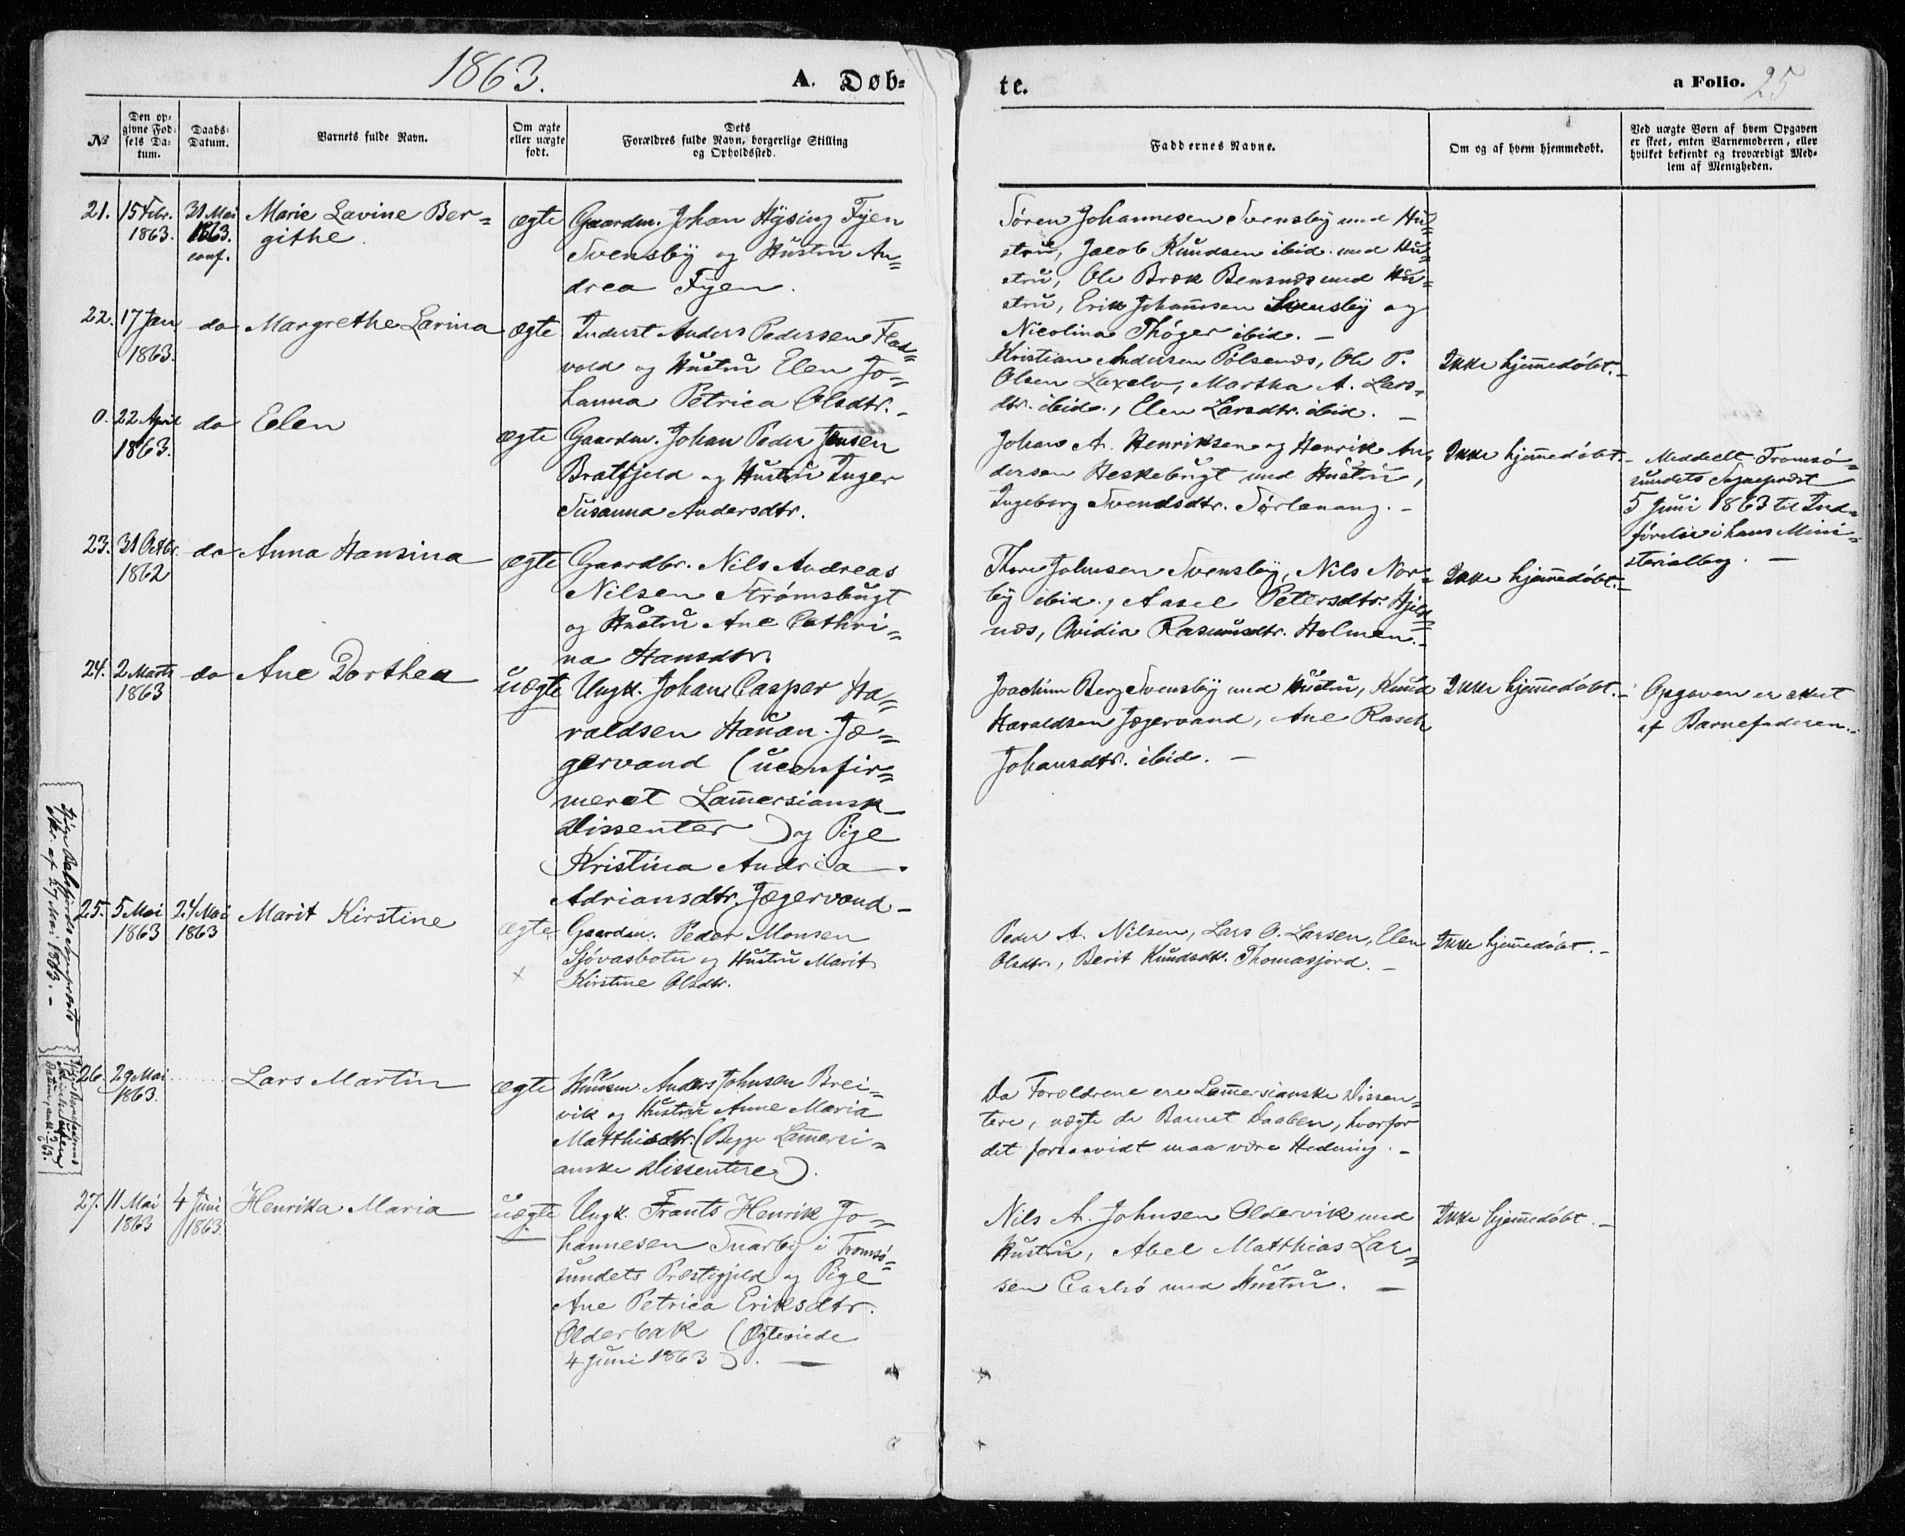 1863.
A. Døb=
te.
a Folio. 25
№
Den op=
givne Fød=
sels Da=
tum.
Daabs=
Datum.
Barnets fulde Navn.
Om ægte
eller uægte
født.
Dets
Forældres fulde Navn, borgerlige Stilling
og Opholdssted.
Faddernes Navne.
Om og af hvem hjemmedøbt.
Ved uægte Børn af hvem Opgaven
er skeet, enten Barnemoderen, eller
hvilket bekjendt og troværdigt Med=
lem af Menigheden.
21.
15 Febr.
1863.
31 Mai
1863.
conf.
Marie Lavine Ber=
githe.
ægte
Gaardm. Johan Hysing Fyen
Svensby og Hustru An=
drea Fyen.
Søren Johannesen Svensby med Hu=
stru, Jacob Knudsen ibid. med Hu=
stru, Ole Bræk Bensnæs med Hu=
stru, Erik Johannsen Svensby og
Nicolina Thøger ibid. –
22.
17 Jan
1863.
do
Margrethe Larina
ægte
Inderst Anders Pedersen Fled=
vold og Hustru Elen Jo=
hanna Petrica Olsdtr. –
Kristian Andersen Pølsenæs, Ole P.
Olsen Laxelv, Martha A. Lars=
dtr. ibid., Elen Larsdtr. ibid. –
Ikke hjemmedøbt. –
0.
22 April
1863.
do
Elen
ægte
Gaardm. Johan Peder Jensen
Bratfjeld og Hustru Inger
Susanna Andersdtr.
Johan A. Henriksen og Henrik An=
dersen Heskebugt med Hustru,
Ingeborg Svendsdtr. Sørlenang. –
Ikke hjemmedøbt. –
Meddelt Tromsø=
sundets Sognepræst
5 Juni 1863 til Ind=
førelse i hans Mini=
sterialbog. –
23.
31 Octbr.
1862
do
Anna Hansina
ægte
Gaardbr. Nils Andreas
Nilsen Strømsbugt
og Hustru Ane Cathri=
na Hansdtr.
Thore Johnsen Svensby, Nils Nor=
by ibid., Aasel Petersdtr. Hjels=
næs, Ovidia Rasmusdtr. Holmen. –
Ikke hjemmedøbt. –
24.
2 Marts
1863
do
Ane Dorthea
uægte
Ungk. Johan Casper Ha=
raldsen Hauan Jæ=
gervand (uconfir=
meret Lammersiansk
Dissenter) og Pige
Kristina Andrea
Adriansdtr. Jægervand –
Joachim Berg Svensby med Hustru, Knud
Haraldsen Jægervand, Ane Rasch
Johansdtr. ibid. –
Ikke hjemmedøbt. –
Opgaven er skeet
af Barnefaderen. –
25.
5 Mai
1863
24 Mai
1863
Marit Kirstine
ægte
×
Gaardm. Peder Monsen
Sjøvasbotn og Hustru Marit
Kirstine Olsdtr.
Peder A. Nilsen, Lars O. Larsen, Elen
Olsdtr., Berit Knudsdtr. Thomasjord. –
Ikke hjemmedøbt. –
ifølge Balsfjords Sognepræsts
Skr. af 27 Mai 1863. –
26.
29 Mai
1863.
Lars Martin
ægte
Huusm. Anders Johnsen Brei=
vik og Hustru Anne Maria
Matthisdtr. (Begge Lammersi=
anske Dissentere).
Da Forældrene ere Lammersianske Dissen=
tere, nægte de Barnet Daaben, hvorfor
det forsaavidt maa være Hedning. –
27.
11 Mai
1863
4 Juni
1863.
Henrikka Maria
uægte
Ungk. Frants Henrik Jo=
hannesen Snarby i Tromsø=
sundets Præstegjeld og Pige
Ane Petrica Eriksdtr.
Olderbak (Egteviede
4 Juni 1863). –
Nils A. Johnsen Oldervik med
Hustru, Abel Matthias Lar=
sen Carlsø med Hustru. –
Ikke hjemmedøbt. –